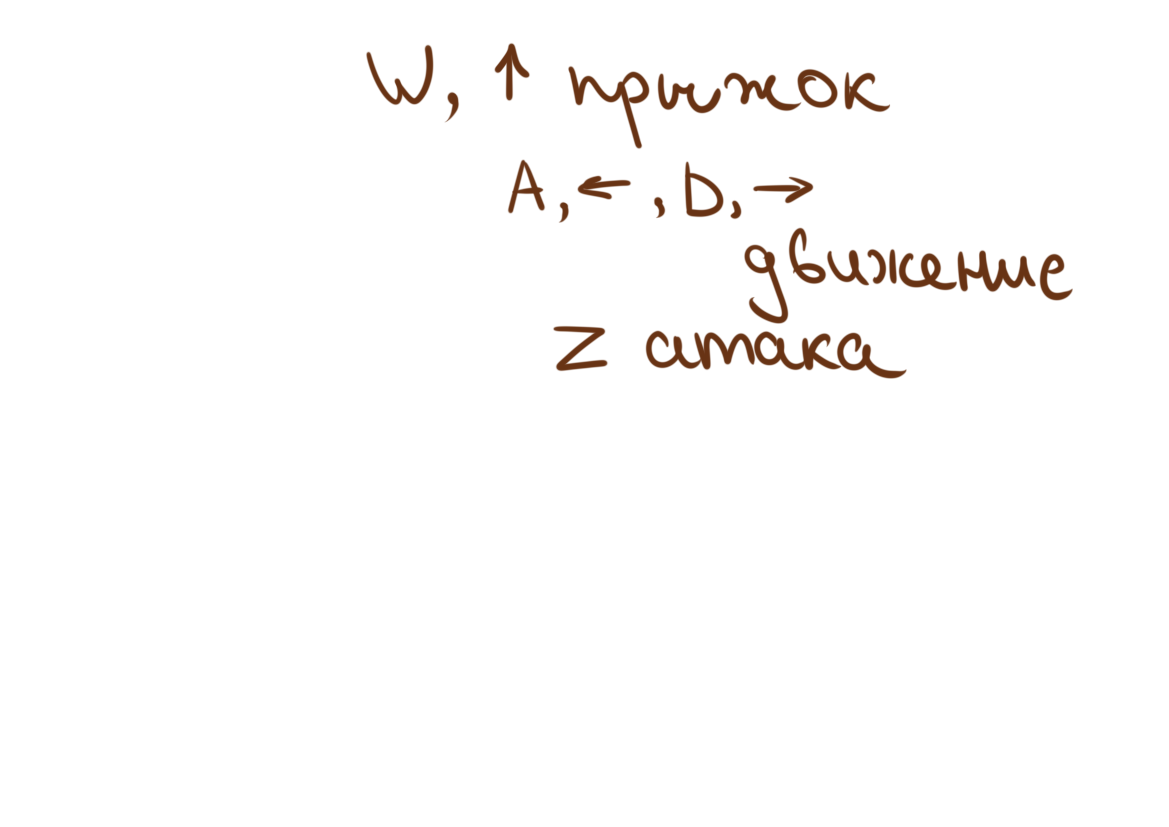 W, ↑ прыжок
A, ← , D, →
движение
Z атака